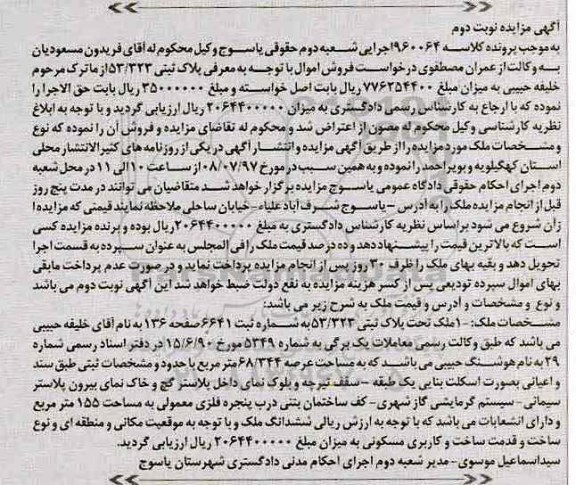 آگهی مزایده نوبت دوم
به موجب پرونده کلاسه ۹۶۰۰۶۴اجرایی شعبه دوم حقوقی یاسوج وکیل محکوم له آقای فریدون مسعودیان
به وکالت از عمران مصطفوی درخواست فروش اموال با توجه به معرفی پلاک ثبتی ۵۳/۳۲۳از ماترک مرحوم
خلیفه حبیبی به میزان مبلغ ۷۷۶۲۵۴۴۰۰ ریال بابت اصل خواسته و مبلغ ۳۵۰۰۰۰۰۰ ریال بابت حق الاجرا را
نموده که با ارجاع به کارشناس رسمی دادگستری به میزان ۲۰۶۴۴۰۰۰۰۰ ریال ارزیابی گردید و با توجه به ابلاغ
نظریه کارشناسی وکیل محکوم له مصون از اعتراض شد و محکوم له تقاضای مزایده و فروش آن را نموده که نوع
و مشخصات ملک مورد مزایده را از طریق آگهی مزایده و انتشار آگهی در یکی از روزنامه های کثیرالانتشار محلی
استان کهگیلویه و بویراحمد را نموده و به همین سبب در مورخ ۰۸/۰۷/۹۷ از ساعت ۱۰ الی ۱۱ در محل شعبه
دوم اجرای احکام حقوقی دادگاه عمومی یاسوج مزایده برگزار خواهد شد متقاضیان می توانند در مدت پنج روز
قبل از انجام مزایده ملک را به آدرس -یاسوج شرف آباد علیاء-خیابان ساحلی ملاحظه نمایند قیمتی که مزایده ا
زان شروع می شود براساس نظریه کارشناس دادگستری به مبلغ ۲۰۶۴۴۰۰۰۰۰ ریال بوده و برنده مزایده کسی
است که بالاترین قیمت را پیشنهاد دهد و ده درصد قیمت ملک را فی المجلس به عنوان سپرده به قسمت اجرا
تحویل دهد و بقیه بهای ملک را ظرف ۳۰ روز پس از انجام مزایده پرداخت نماید و در صورت عدم پرداخت مابقی
بهای اموال سپرده تودیعی پس از کسر هزینه مزایده به نفع دولت ضبط خواهد شد این آگهی نوبت دوم می باشد
و نوع و مشخصات و آدرس و قیمت ملک به شرح زیر می باشد:
مشخصات ملک: -۱ملک تحت پلاک ثبتی ۵۳/۳۲۳ به شماره ثبت ۶۶۴۱ صفحه ۱۳۶ به نام آقای خلیفه حبیبی
می باشد که طبق وکالت رسمی معاملات یک برگی به شماره ۵۳۴۹ مورخ ۱۵/۶/۹۰ در دفتر اسناد رسمی شماره
۲۹ به نام هوشنگ حبیبی می باشد که به مساحت عرصه ۶۸/۳۴۴ متر مربع با حدود و مشخصات ثبتی طبق سند
و اعیانی بصورت اسکلت بنایی یک طبقه - سقف تیرچه و بلوک نمای داخل پلاستر گچ و خاک نمای بیرون پلاستر
سیمانی- سیستم گرمایشی گاز شهری- کف ساختمان بتنی درب پنجره فلزی معمولی به مساحت ۱۵۵ متر مربع
و دارای انشعابات می باشد که با توجه به ارزش ریالی ششدانگ ملک و با توجه به موقعیت مکانی و منطقه ای و نوع
ساخت و قدمت ساخت و کاربری مسکونی به میزان مبلغ ۲۰۶۴۴۰۰۰۰۰ ریال ارزیابی گردید.
سیداسماعیل موسوی-مدیر شعبه دوم اجرای احکام مدنی دادگستری شهرستان یاسوج